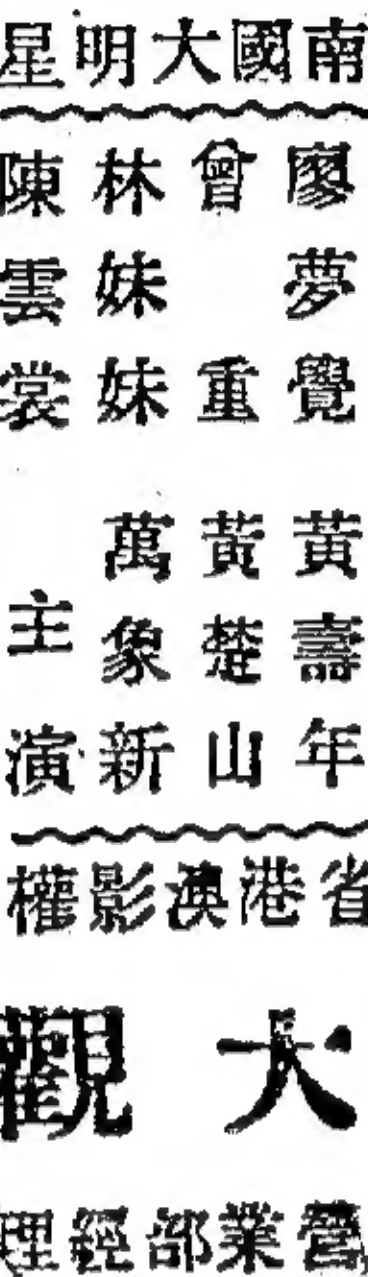 南國大明星
廖夢覺
曾重
林妹妹
陳雲裳
黃壽年
黃楚山
萬象新
主演
省港澳影權
大觀
營業部經理